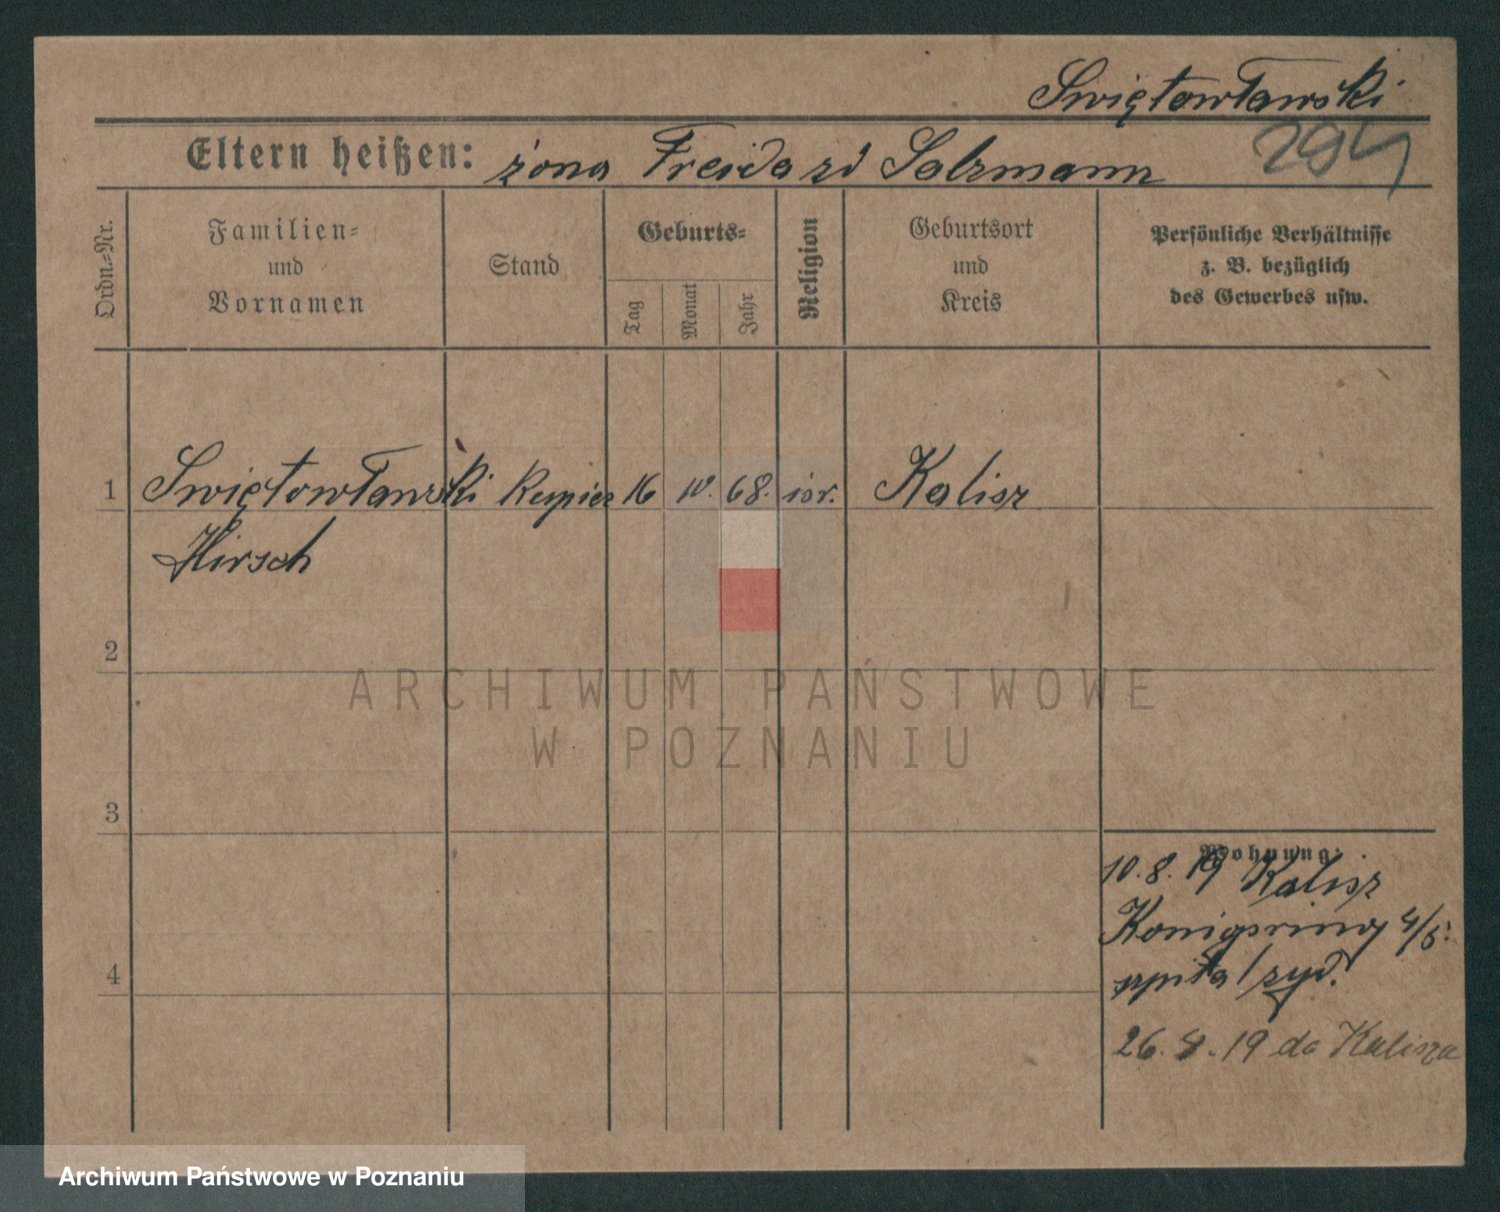 Swiętowławski
Eltern heißen: żona Freida zd Salzmann
294
Ordn.-Nr.
Familien-
und
Vornamen
Stand
Geburts-
Tag
Monat
Jahr
Religion
Geburtsort
und
Kreis
Persönliche Verhältnisse
z. B. bezüglich
des Gewerbes usw.
1 Swiętowławski kupiec 16 10. 68. isr. Kalisz
Hirsch
2
3
4
Wohnung:
10. 8. 19 Kalisz
Konigsring 4/5.
szpital żyd.
26. 8. 19 do Kalisza
ARCHIWUM PAŃSTWOWE
W POZNANIU
Archiwum Państwowe w Poznaniu